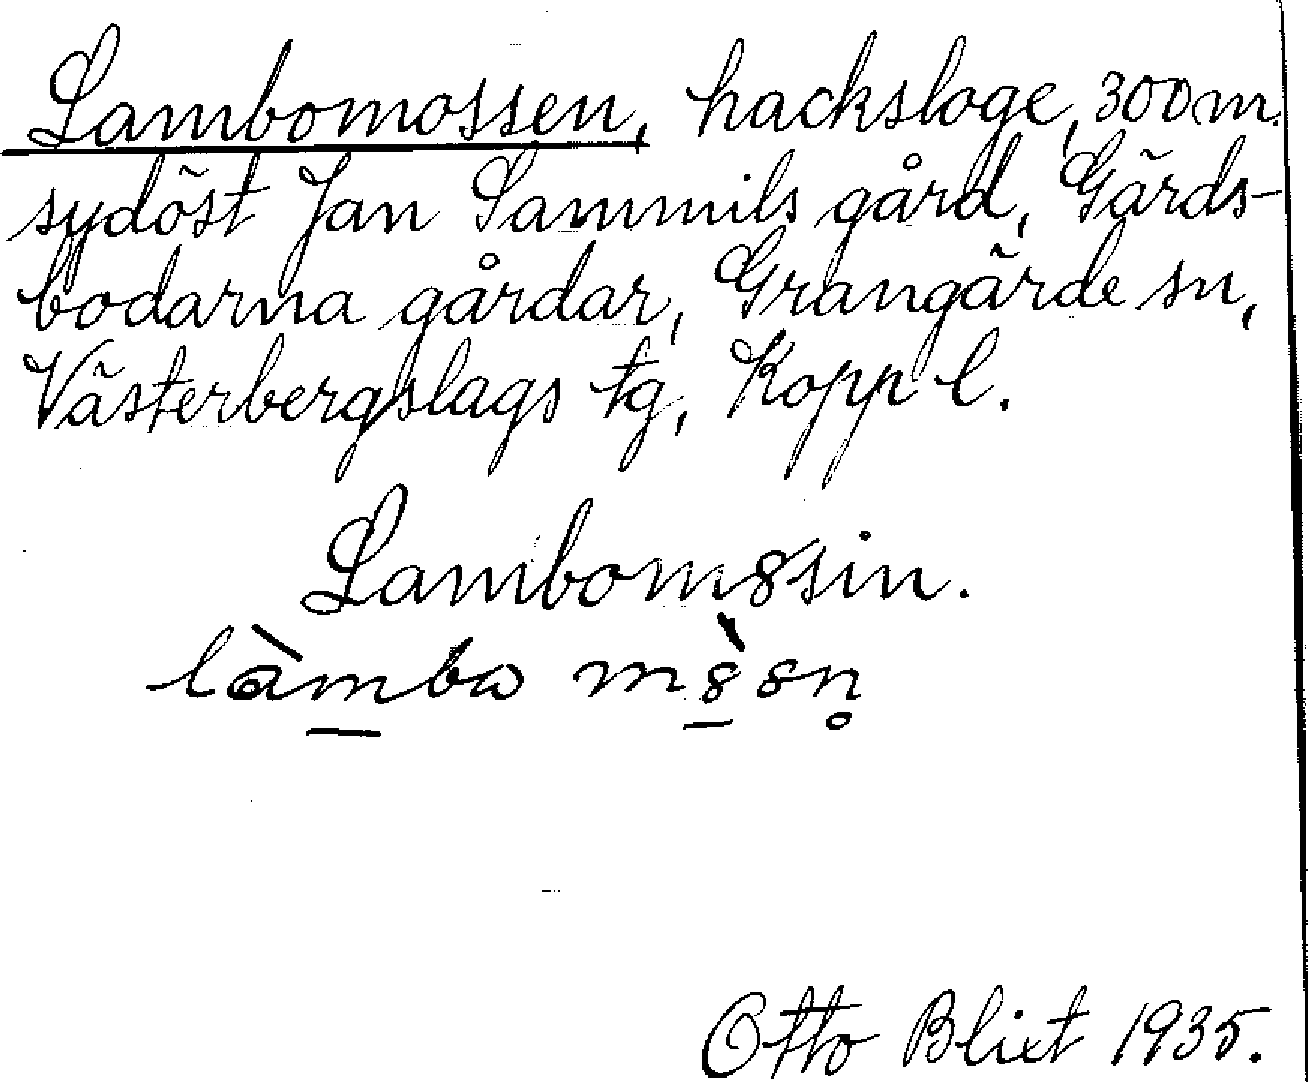 Lambomossen, hacksloge, 300 m.
sydöst Jan Sammils gård, Gärds-
bodarna gårdar, Grangärde sn,
Västerbergslags tg, Kopp l.
Lambom8sin.
làmbo m8̀sn̥
Otto Blixt 1935.